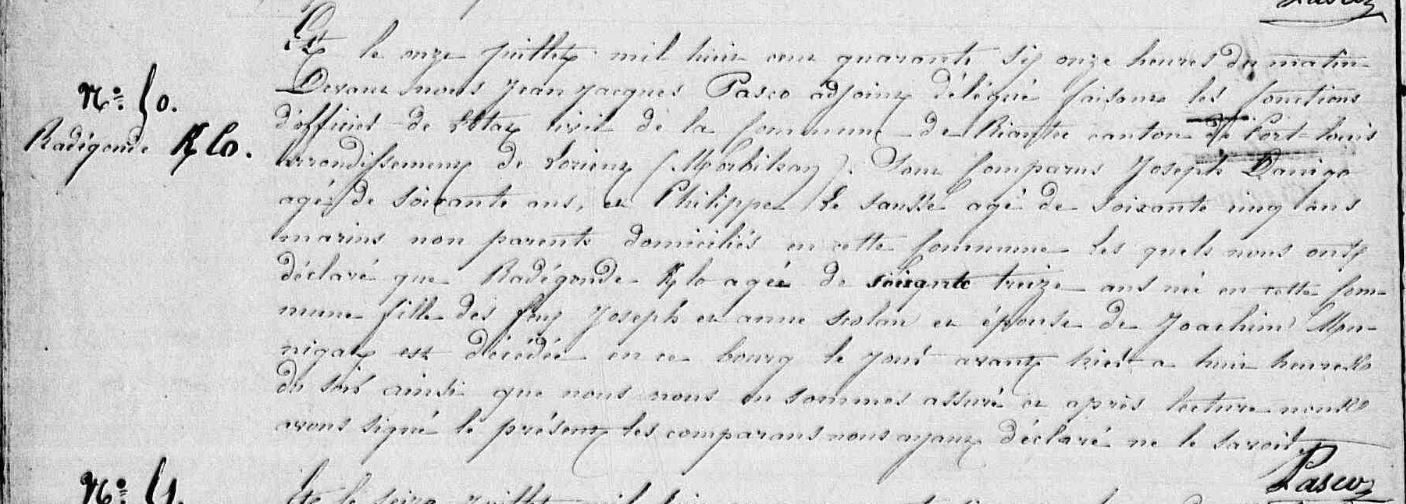 Pasco
Et le onze juillet mil huit cent quarante six onze heures du matin
Devant nous Jean Jacques Pasco adjoint délégué faisant les fonctions
N° 50.
d'officier de l'Etat civil de la commune de Riantec canton de Port-Louis
Radégonde K/lo.
arrondissement de Lorient (Morbihan). Sont comparus Joseph Danigo
agé de soixante ans, et Philippe Le Sausse agé de soixante cinq ans
marins non parents domiciliés en cette commune les quels nous ont
déclaré que Radégonde K/lo agée de soixante treize ans né en cette com-
mune fille des feux Joseph et anne scolan et épouse de Joachim
est décédée en ce bourg le jour avant hier a huit heures
du soir ainsi que nous nous en sommes assuré et après lecture nous
avons signé le présent les comparans nous ayant déclaré ne le savoir
Pasco
N° 51.
Et le seize juillet mil huit cent quarante